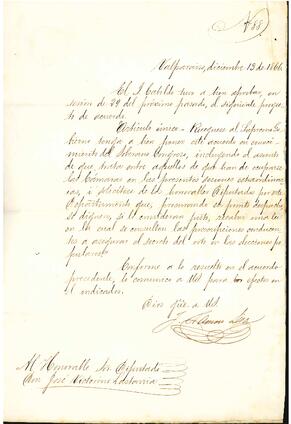 Valparaiso, diciembre 13 de 1864
El I. Cabildo tuvo a bien aprobar, en
sesion de 29 del próximo pasado, el siguiente proyec-
to de acuerdo.
Artículo único - Ruéguese al Supremo Go-
bierno tenga a bien poner este acuerdo en conoci-
miento del Soberano Congreso, incluyendo el asunto
de que trata entre aquellos de que han de ocuparse
las Cámaras en las presentes sesiones estraordina-
rias, i solicítese de los Honorables Diputados por este
Departamento que, procurando su pronto despacho
se dignen, si lo consideran justo, recabar una lei
en la cual se consulten las prescripciones conducen-
tes a asegurar el secreto del voto en las elecciones po-
pulares.
Conforme a lo resuelto en el acuerdo
precedente, lo comunico a US para los efectos en
él indicados.
Dios gue. a US
Al Honorable Sor. Diputado
Don José Victorino Lastarria